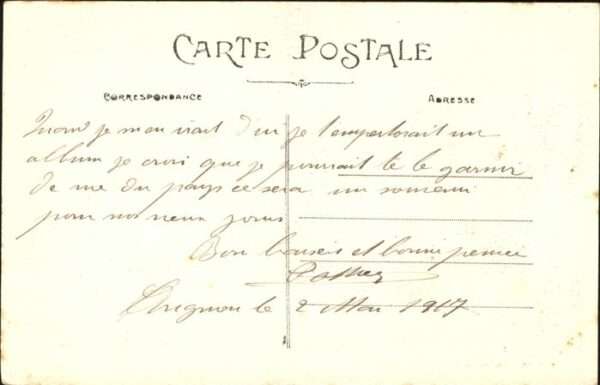 CARTE POSTALE
CORRESPONDANCE
ADRESSE
Quand je m'en irait d'ici je t'emporterait un
album je crois que je pourrait te le garnir
de vue du pays ce sera un souvenir
pour nos vieux jours
Bon baisers et bonne pensée
le 2 Mai 1917